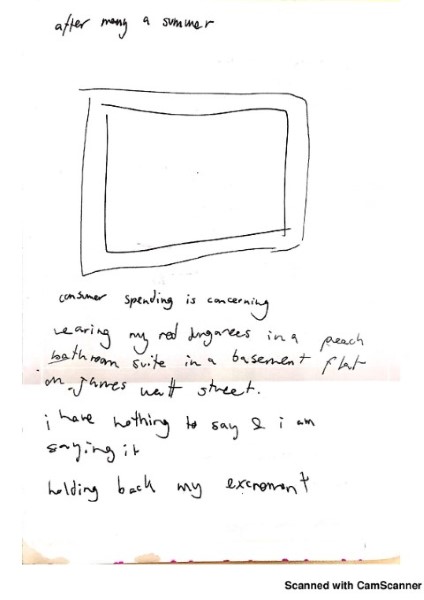 after many a summer
consumer spending is concerning
wearing my red dungarees in a peach
bathroom suite in a basement flat
on James watt street.
i have nothing to say & i am
saying it
holding back my excrement
Scanned with CamScanner